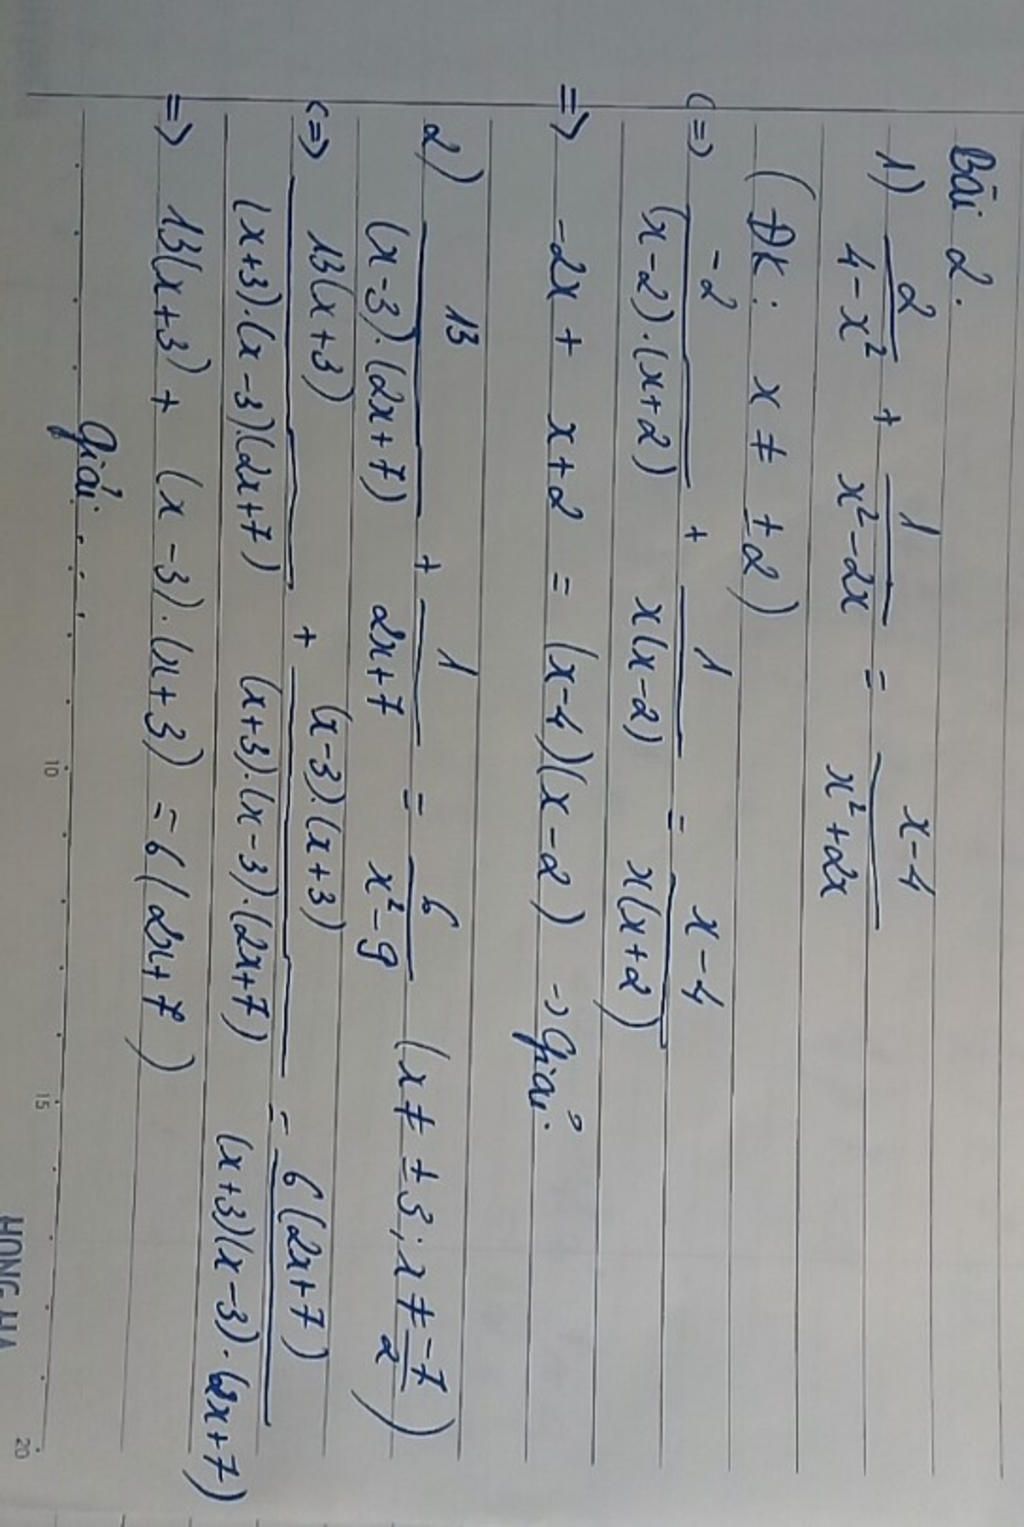 Bài 2.
1) 2/(4-x²) + 1/(x²-2x) = (x-4)/(x²+2x)
(ĐK: x ≠ ±2)
(=) -2/((x-2).(x+2)) + 1/(x(x-2)) = (x-4)/(x(x+2))
=) -2x + x+2 = (x-4)(x-2) → Giải.
2) 13/((x-3).(2x+7)) + 1/(2x+7) = 6/(x²-9) (x ≠ ±3; x ≠ -7/2)
(=) 13(x+3)/((x+3).(x-3)(2x+7)) + (x-3).(x+3)/((x+3).(x-3).(2x+7)) = 6(2x+7)/((x+3)(x-3).(2x+7))
=) 13(x+3) + (x-3).(x+3) = 6(2x+7)
Giải...
10 15 20